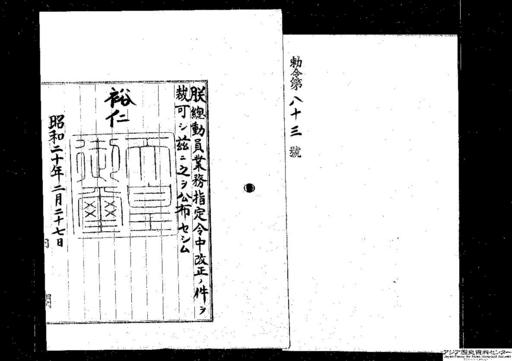 勅令第八十三號
朕總動員業務指定令中改正ノ件ヲ
裁可シ茲ニ之ヲ公布セシム
裕仁
天皇御璽
昭和二十年二月二十七日
内
アジア歴史資料センター
Japan Center for Asian Historical Records